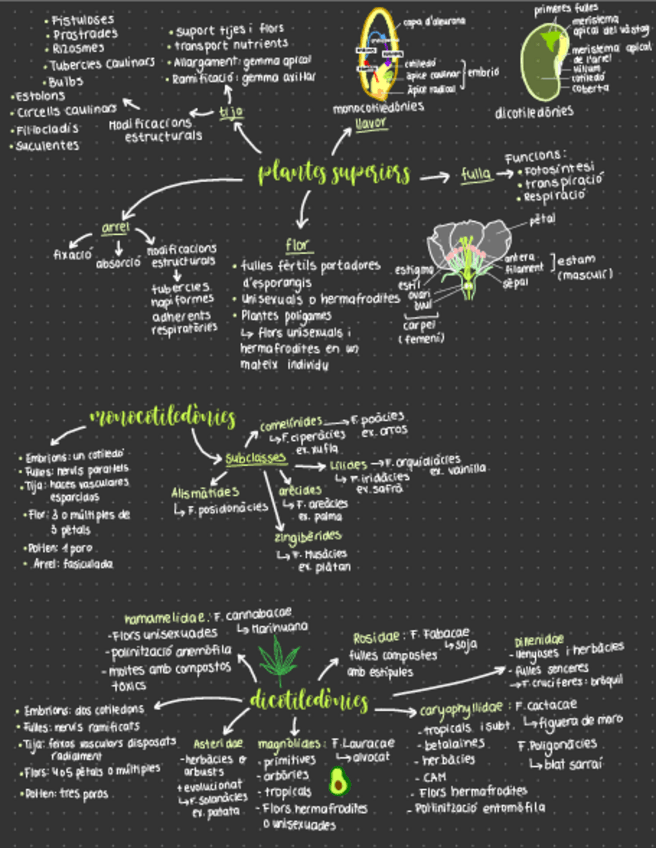 • Fistuloses
• Prostrades
• Rizosmes
• Tubercles caulinars
• Bulbs
• Estolons
• Circells caulinars
• Fil·locladis
• Suculentes
Modificacions
estructurals
• suport tijes i flors
• transport nutrients
• Allargament: gemma apical
• Ramificació: gemma axil·lar
tija
capa d'aleurona
cotiledó
àpice caulinar
Àpice radical
embrió
monocotiledònies
llavor
primeres fulles
meristema
apical del vàstag
meristema apical
de l'arrel
hilium
cotiledó
coberta
dicotiledònies
plantes superiors
fulla
Funcions:
• Fotosíntesi
• transpiració
• Respiració
arrel
fixació
absorció
modificacions
estructurals
tubercles
napiformes
adherents
respiratòries
flor
• fulles fèrtils portadores
d'esporangis
• Unisexuals o hermafrodites
• Plantes polígames
↳ flors unisexuals i
hermafrodites en un
mateix individu
pètal
antera
filament
sèpal
estam
(masculí)
estigma
estil
ovari
òvul
carpel
(femení)
monocotiledònies
• Embrions: un cotiledó
• Fulles: nervis paral·lels
• Tija: haces vasculares
esparcidos
• Flor: 3 o múltiples de
3 pètals
• Pol·len: 1 poro
• Arrel: fasciculada
subclasses
comelínides
F. poàcies
ex. arròs
↳ F. ciperàcies
ex. xufla
Lílides
F. orquidiàcies
ex. vainilla
↳ F. iridàcies
ex. safrà
Alismàtides
↳ F. posidonàcies
arècides
↳ F. areàcies
ex. palma
zingibèrides
↳ F. Musàcies
ex. plàtan
hamamelidae: F. cannabacae
↳ Marihuana
- Flors unisexuades
- pol·linització anemòfila
- moltes amb compostos
tòxics
Rosidae: F. Fabacae
↳ soja
fulles compostes
amb estípules
Dilenidae
- llenyoses i herbàcies
- fulles senceres
↳ F. crucíferes: bròquil
dicotiledònies
• Embrions: dos cotiledons
• Fulles: nervis ramificats
• Tija: feixos vasculars disposats
radialment
• Flors: 4 o 5 pètals o múltiples
• Pol·len: tres poros
Asteridae
- herbàcies o
arbusts
+ evolucionat
↳ F. solanàcies
ex. patata
magnòlides: F. Lauracae
↳ alvocat
- primitives
- arbòries
- tropicals
- Flors hermafrodites
o unisexuades
caryophyllidae: F. Cactacae
↳ figuera de moro
- tropicals i subt.
- betalaïnes
- herbàcies
- CAM
- Flors hermafrodites
- Pol·linització entomòfila
F. Poligonàcies
↳ blat sarraí